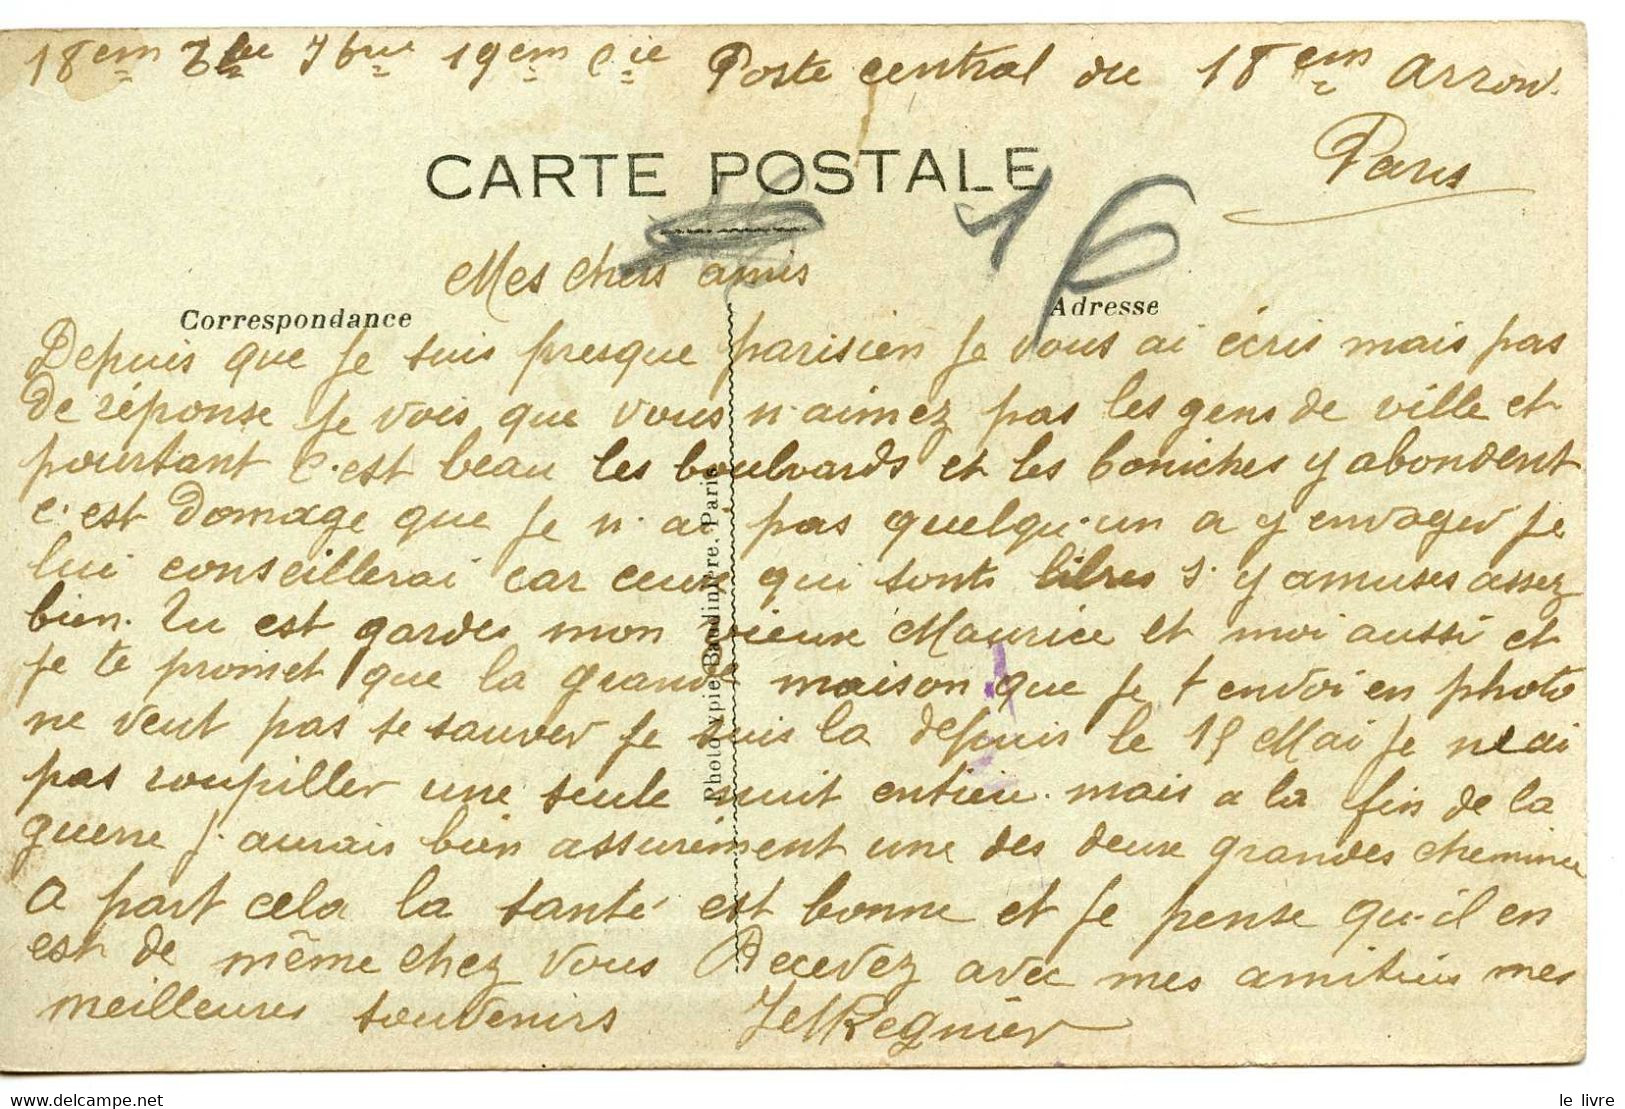 18em 19em Cie Poste central du 18em Arron.
Paris
CARTE POSTALE
16
Mes chers amis
Correspondance
Adresse
Depuis que je suis presque parisien je vous ai écris mais pas
de réponse je vois que vous n'aimez pas les gens de ville et
pourtant c'est beau les boulvards et les boniches y abondent
c'est domage que je n'ai pas quelqu'un a y envoyer je
lui conseillerai car ceux qui sonts libres s'y amuses assez
bien. Tu est gardes mon vieux Maurice et moi aussi et
je te promet que la grande maison que je t envoi en photo
ne veut pas se sauver je suis la depuis le 15 Mai je n'ai
pas roupiller une seule nuit entieu. mais a la fin de la
guerre j'aurais bien assurément une des deux grandes cheminée
A part cela la santé est bonne et je pense qu'il en
est de même chez vous Recevez avec mes amitiées mes
meilleures souvenirs Regnier
Phototypie Baudinière, Paris
le livre